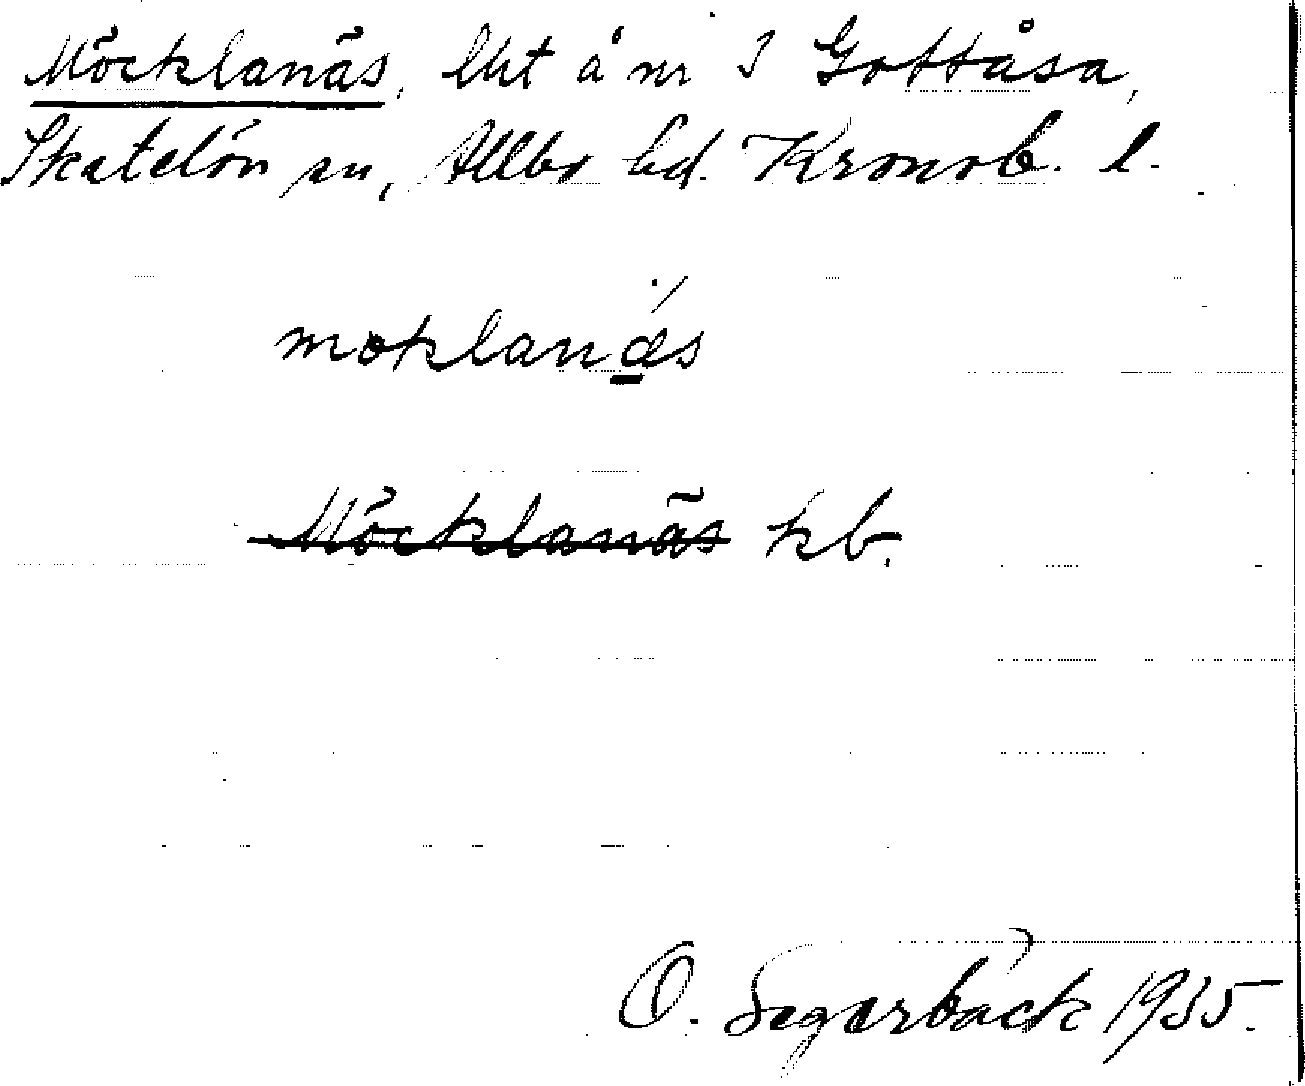 Möcklanäs, lht å nr 3 Gottåsa,
Skatelöv sn, Allbo hd. Kronob. l.
moklanäs
Möcklanäs kb.
O. Segerbäck 1935.